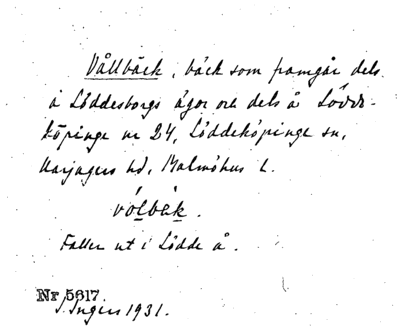 Vållbäck, bäck som framgår dels
å Löddesborgs ägor och dels å Lödde-
köpinge nr 24, Löddeköpinge sn,
Harjagers hd, Malmöhus l.
vólbä̀k.
Faller ut i Lödde å.
Nr 5617.
S. Ingers 1931.